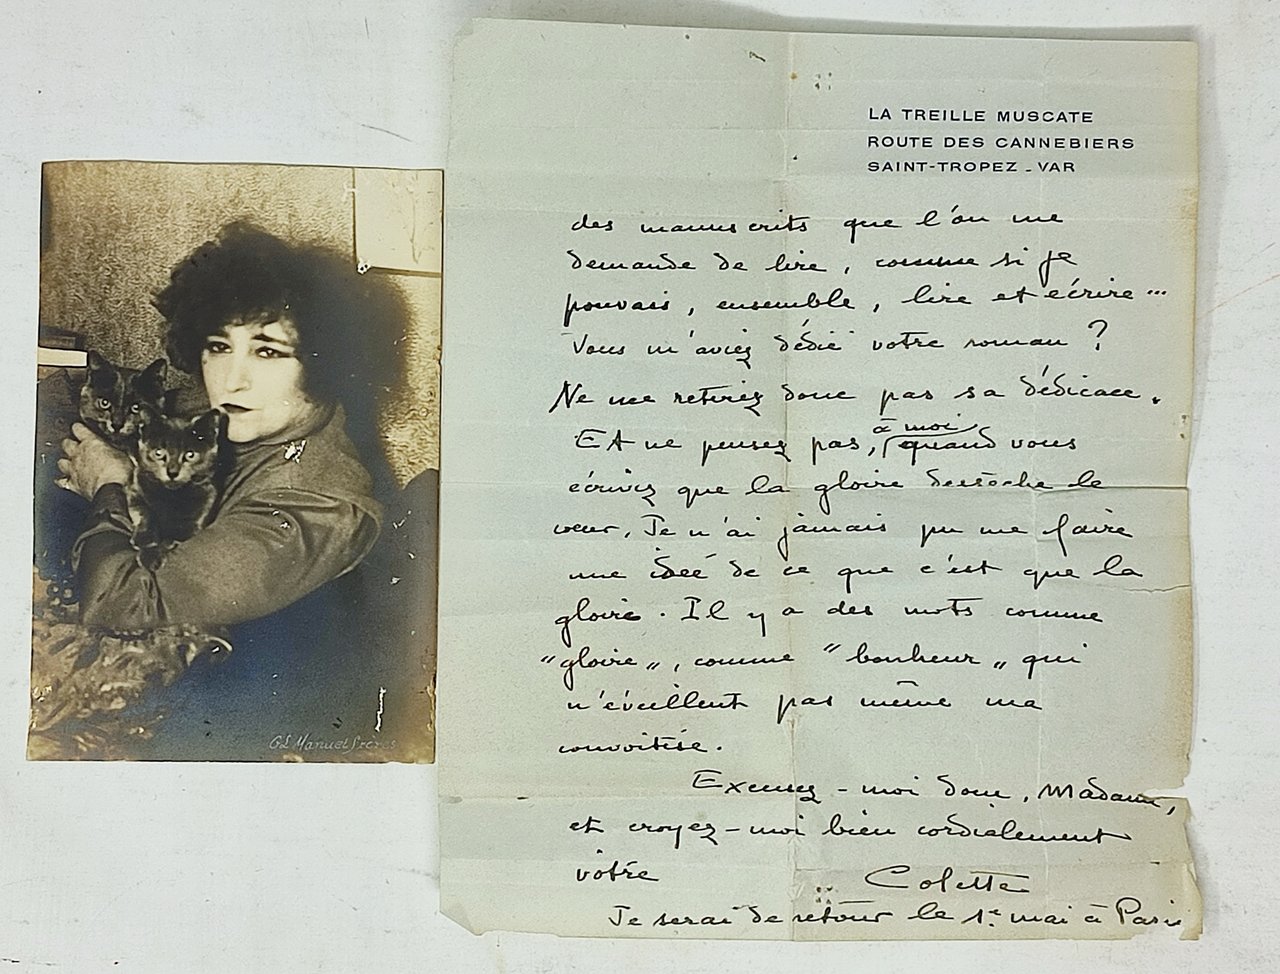 LA TREILLE MUSCATE
ROUTE DES CANNEBIERS
SAINT-TROPEZ - VAR
des manuscrits que l'on me
demande de lire, comme si je
pouvais, ensemble, lire et écrire...
Vous m'aviez dédié votre roman ?
Ne me retirez donc pas sa dédicace.
Et ne pensez pas, quand vous
à moi
écrivez que la gloire dessèche le
cœur. Je n'ai jamais pu me faire
une idée de ce que c'est que la
gloire. Il y a des mots comme
"gloire", comme "bonheur" qui
n'éveillent pas même ma
convoitise.
Excusez-moi donc, Madame,
et croyez-moi bien cordialement
vôtre
Colette
Je serai de retour le 1er mai à Paris
GL Manuel frères